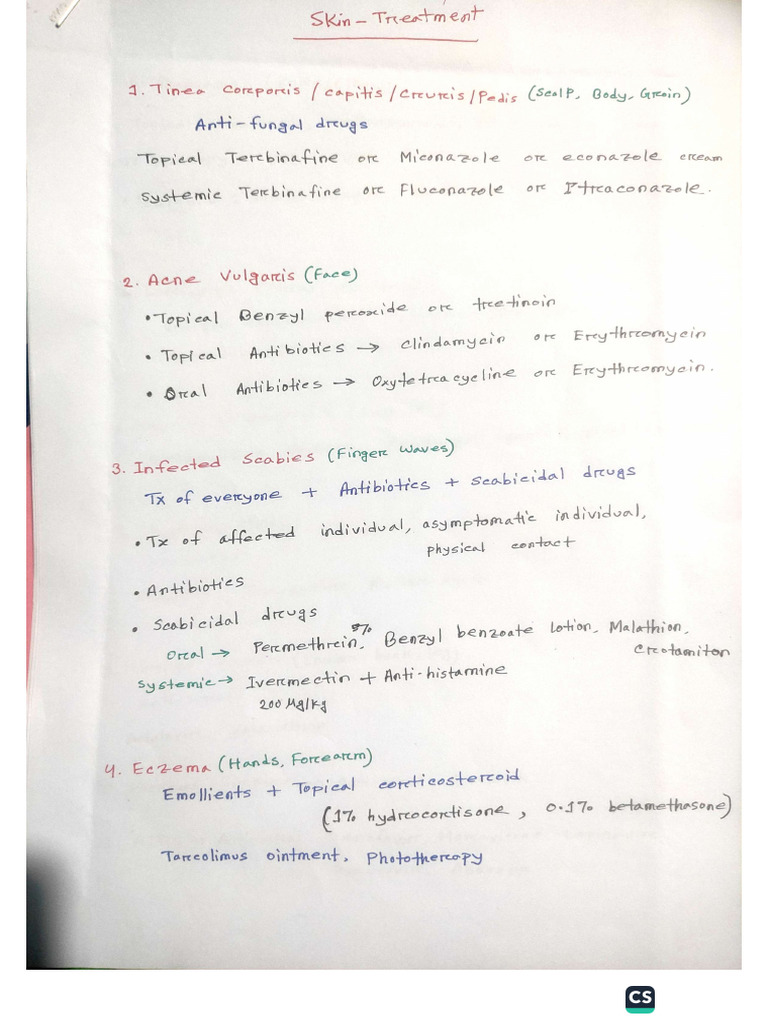 Skin - Treatment
1. Tinea Corporis / Capitis / Cruris / Pedis (Scalp, Body, Groin)
Anti-fungal drugs
Topical Terbinafine or Miconazole or econazole cream
Systemic Terbinafine or Fluconazole or Itraconazole.
2. Acne Vulgaris (Face)
• Topical Benzyl peroxide or tretinoin
• Topical Antibiotics → Clindamycin or Erythromycin
• Oral Antibiotics → Oxytetracycline or Erythromycin.
3. Infected Scabies (Finger Waves)
Tx of everyone + Antibiotics + Scabicidal drugs
• Tx of affected individual, asymptomatic individual,
physical contact
• Antibiotics
• Scabicidal drugs
Oral → Permethrin 5%, Benzyl benzoate lotion, Malathion,
Crotamiton
Systemic → Ivermectin + Anti-histamine
200 Mg/kg
4. Eczema (Hands, Forearm)
Emollients + Topical corticosteroid
(1% hydrocortisone, 0.1% betamethasone)
Tarcolimus ointment, Phototherapy
CS